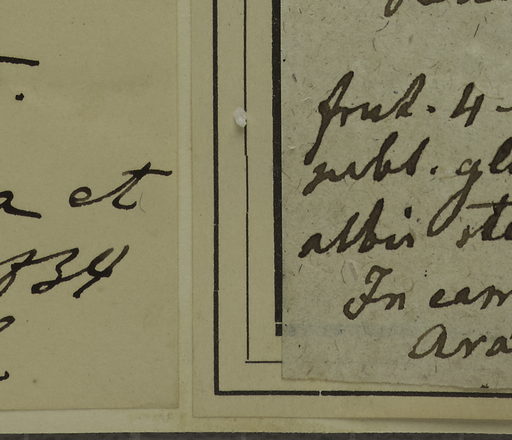 a et
1834
frut. 4-
subt. gl
albis ste
In cam
Ara